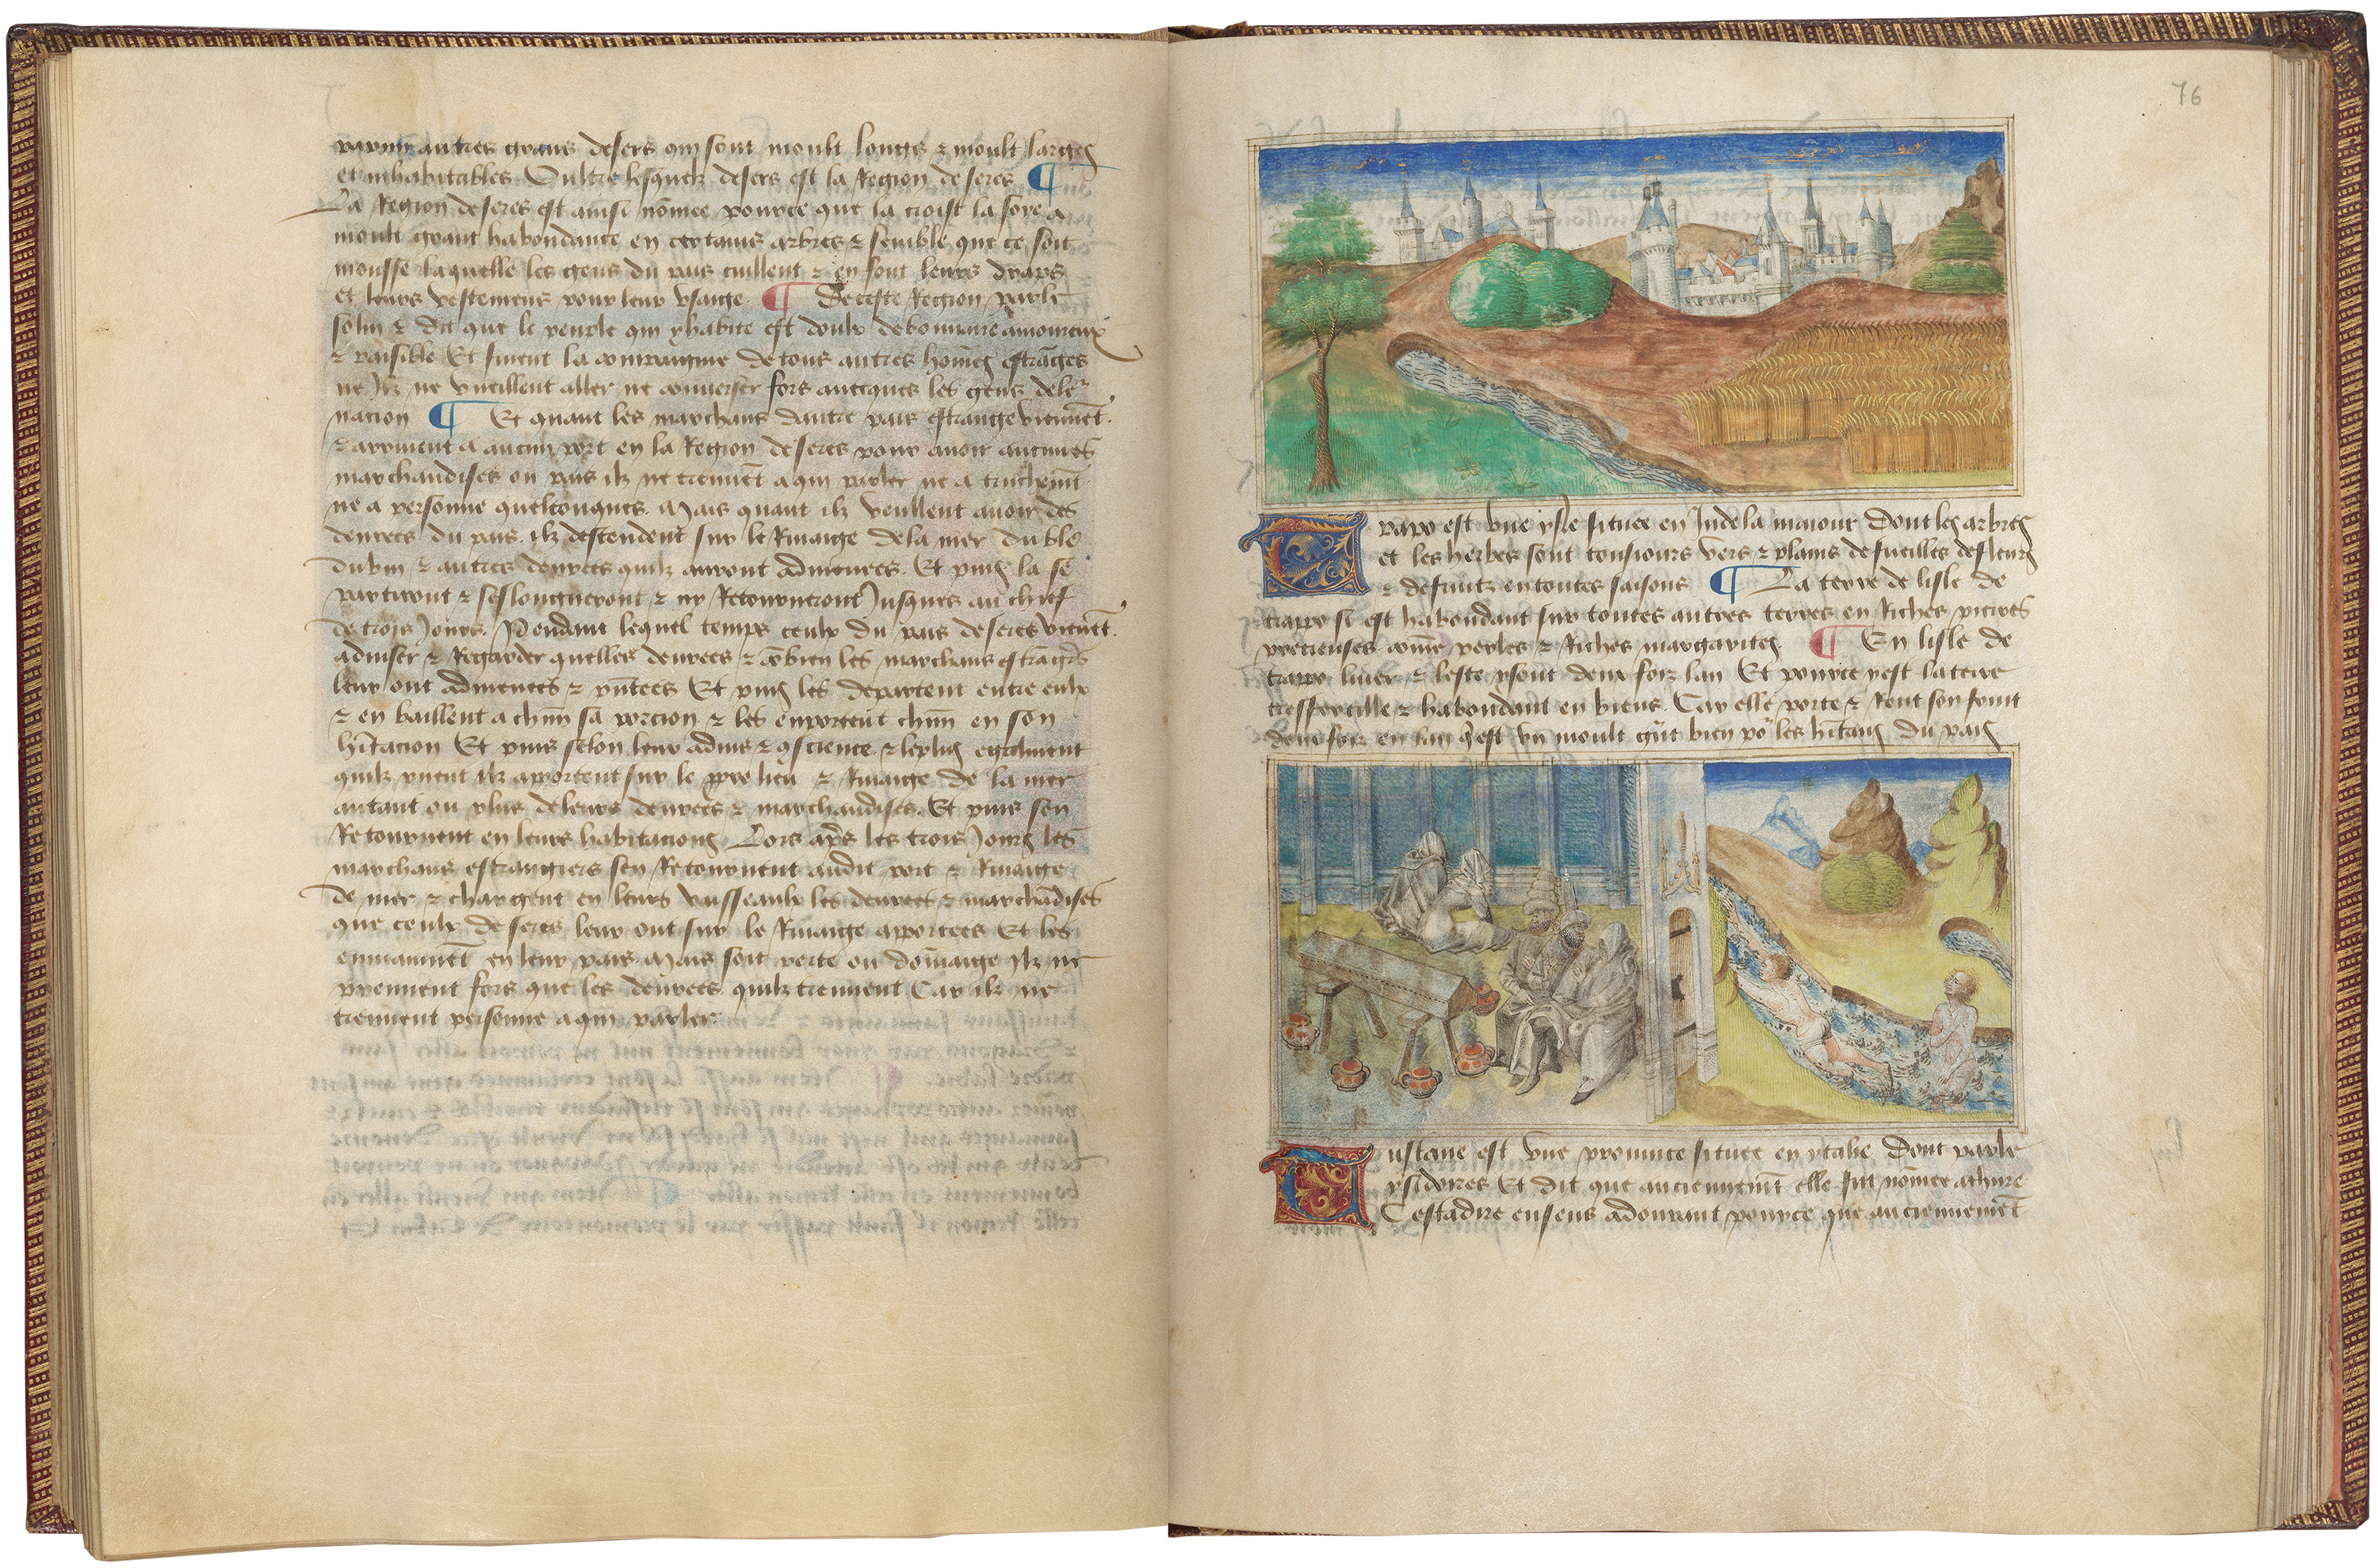 autres grans desers qui sont moult longs & moult larges
et inhabitables Oultre lesquelz desers est la Region de seres ¶
La Region de seres est ainsi nōmee pource que la croist la soye a
moult grant habondance en certains arbres & semble que ce soit
mousse laquelle les gens du pais cuillent & en font leurs draps
et leurs vestemens pour leur vsaige ¶ De ceste Region parle
solin & dit que le peuple qui y habite est doulx debonnaire amoureux
& paisible Et fuient la compaignie de tous autres hom̄es estrāges
ne Ilz ne vueillent aller ne conuerser fors auecques les gens de le
nacion ¶ Et quant les marchans dautre pais estrange viennēt
& arriuent a aucun port en la Region de seres pour auoir aucunes
marchandises ou pais ilz ne treuuēt a qui parler ne a truchemēt
ne a personne quelconques. Mais quant ilz veullent auoir des
denrees du pais ilz descendent sur le Riuaige de la mer du ble
du vin & autres denrees quilz auront admenees. Et puis la se
partiront & seslongneront & ny Retourneront Jusques au chief
de trois Jours. Pendant lequel temps ceulx du pais de seres viēnēt
aduiser & Regarder quelles denrees & cōbien les marchans estrāgiers
leur ont admenees & Et puis les departent entre eulx
& en baillent a chūn sa porcion & les enportent chūn en son
hītacion Et puis selon leur aduis & ɔscience & le plus egalment
quilz peuent ilz apportent sur le ppre lieu & Riuaige de la mer
autant ou plus de leurs denrees & marchandises. Et puis sen
Retournent en leurs habitacions Lors apres les trois Jours les
marchans estrangiers sen Retournent audit port & Riuaige
de mer & chargent en leurs vaisseaulx les denrees & marchādises
que ceulx de seres leur ont sur le Riuaige apportees Et les
enmainnēt en leur pais Mais soit perte ou dōmaige Ilz ne
prennent fors que les denrees quilz treuuent Car ilz ne
treuuent personne a qui parler
76
Trapo est vne ysle situee en Inde la maiour Dont les arbres
et les herbes sont tousiours vers & plains de fueilles de fleurs
& de fruitz en toutes saisons ¶ La terre de lisle de
trapo si est habondant sur toutes autres terres en Riches pierres
precieuses cōme perles & Riches margarites ¶ En lisle de
trapo liuer & leste y sont deux foiz lan Et pource y est la terre
tresfertille & habondant en biens Car elle porte & Rent son fruit
deux foiz en lan qest vn moult gūt bien pour les hītans du pais
Tustane est vne prouince situee en ytalie Dont parle
ysidoires Et dit que anciennemēt elle fut nōmee athure
Cestadire ensens adourant pource que anciennemēt